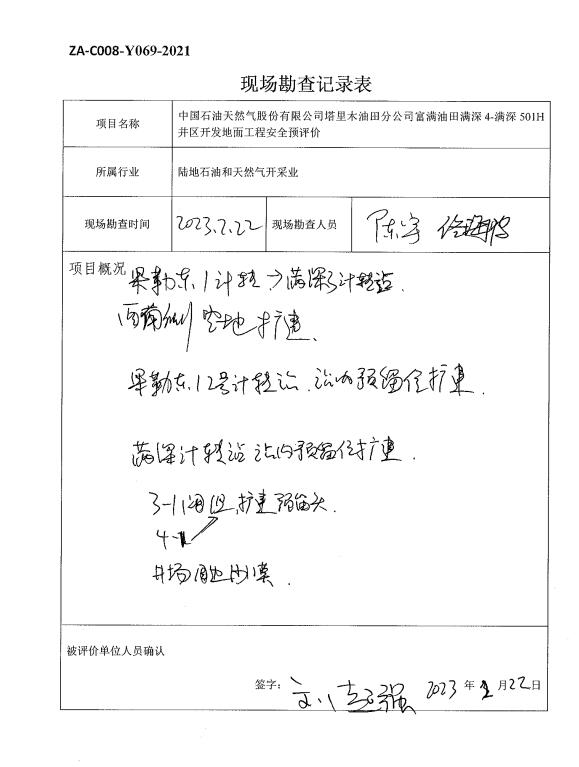 ZA-C008-Y069-2021
现场勘查记录表
项目名称
中国石油天然气股份有限公司塔里木油田分公司富满油田满深4-满深501H
井区开发地面工程安全预评价
所属行业
陆地石油和天然气开采业
现场勘查时间
2023.2.22
现场勘查人员
陈宇
项目概况
果勒东1计转→满深3计转站.
西南侧 空地扩建.
果勒东12号计转站.站内预留位扩建.
满深计转站站内预留位扩建.
3-1阀组,扩建预留头.
4-1
井场周边沙漠.
被评价单位人员确认
签字:
2023年2月22日